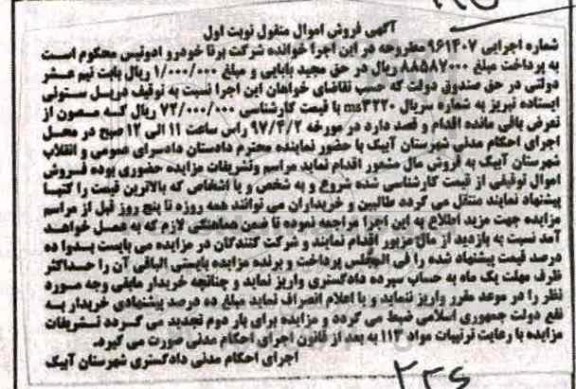 آگهی فروش اموال منقول نوبت اول
شماره اجرایی ۹۶۱۴۰۷ مطروحه در این اجرا خوانده شرکت برنا خودرو ادونیس محکوم است
به پرداخت مبلغ ۸۸۵۸۷۰۰۰ ریال در حق مجید بابایی و مبلغ ۱/۰۰۰/۰۰۰ ریال بابت نیم عشر
دولتی در حق صندوق دولت که حسب تقاضای خواهان این اجرا نسبت به توقیف دریل ستونی
ایستاده تبریز به شماره سریال ms۳۲۲۰ با قیمت کارشناسی ۷۲/۰۰۰/۰۰۰ ریال که مصون از
تعرض باقی مانده اقدام و قصد دارد در مورخه ۹۷/۴/۲ راس ساعت ۱۱ الی ۱۲ صبح در محل
اجرای احکام مدنی شهرستان آبیک با حضور نماینده محترم دادستان دادسرای عمومی و انقلاب
شهرستان آبیک به فروش مال مذکور اقدام نماید مراسم وتشریفات مزایده حضوری بوده فروش
اموال توقیفی از قیمت کارشناسی شده شروع و به شخص و یا اشخاص که بالاترین قیمت را کتبا
پیشنهاد نمایند منتقل می گردد طالبین و خریداران می توانند همه روزه تا پنج روز قبل از مراسم
مزایده جهت مزید اطلاع به این اجرا مراجعه نموده تا ضمن هماهنگی لازم که به عمل خواهد
آمد نسبت به بازدید از مال مزبور اقدام نمایند و شرکت کنندگان در مزایده می بایست بدوا ده
درصد قیمت پیشنهاد شده را فی المجلس پرداخت و برنده مزایده بایستی الباقی آن را حداکثر
ظرف مهلت یک ماه به حساب سپرده دادگستری واریز نماید و چنانچه خریدار مابقی وجه مورد
نظر را در موعد مقرر واریز ننماید و یا اعلام انصراف نماید مبلغ ده درصد پیشنهادی خریدار به
نفع دولت جمهوری اسلامی ضبط می گردد و مزایده برای بار دوم تجدید می گردد تشریفات
مزایده با رعایت ترتیبات مواد ۱۱۳ به بعد از قانون اجرای احکام مدنی صورت می گیرد.
اجرای احکام مدنی دادگستری شهرستان آبیک